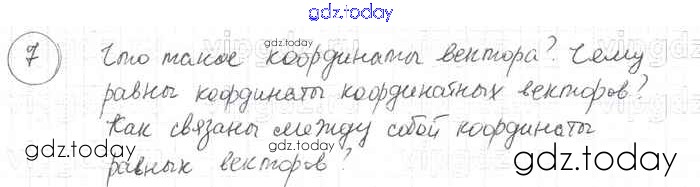 gdz.today
7 Что такое координаты вектора? Чему
gdz.today
равны координаты координатных векторов?
Как связаны между собой координаты
gdz.today
равных векторов?
gdz.today